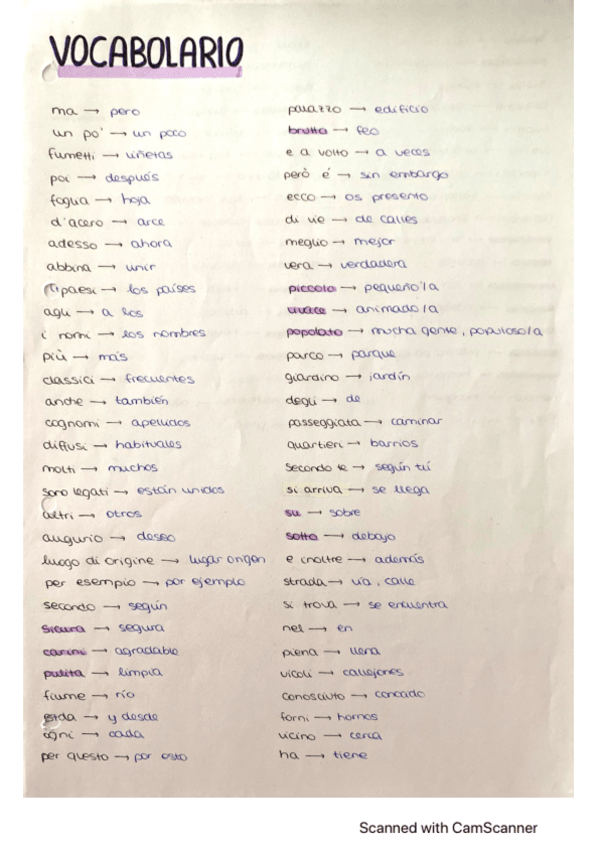 VOCABOLARIO
ma → pero
un po' → un poco
fumetti → viñetas
poi → después
foglia → hoja
d'acero → arce
adesso → ahora
abbina → unir
i paesi → los países
agli → a los
i nomi → los nombres
più → más
classici → frecuentes
anche → también
cognomi → apellidos
diffusi → habituales
molti → muchos
sono legati → están unidos
altri → otros
augurio → deseo
luogo di origine → lugar origen
per esempio → por ejemplo
secondo → según
sicura → segura
carini → agradable
pulita → limpia
fiume → río
e da → y desde
ogni → cada
per questo → por esto
palazzo → edificio
brutto → feo
e a volto → a veces
però é → sin embargo
ecco → os presento
di vie → de calles
meglio → mejor
vera → verdadera
piccolo → pequeño/a
vivace → animado/a
popolato → mucha gente, populoso/a
parco → parque
giardino → jardín
degli → de
passeggiata → caminar
quartieri → barrios
secondo te → según tú
si arriva → se llega
su → sobre
sotto → debajo
e inoltre → además
strada → vía, calle
si trova → se encuentra
nel → en
piena → llena
vicoli → callejones
conosciuto → conocido
forni → hornos
vicino → cerca
ha → tiene
Scanned with CamScanner